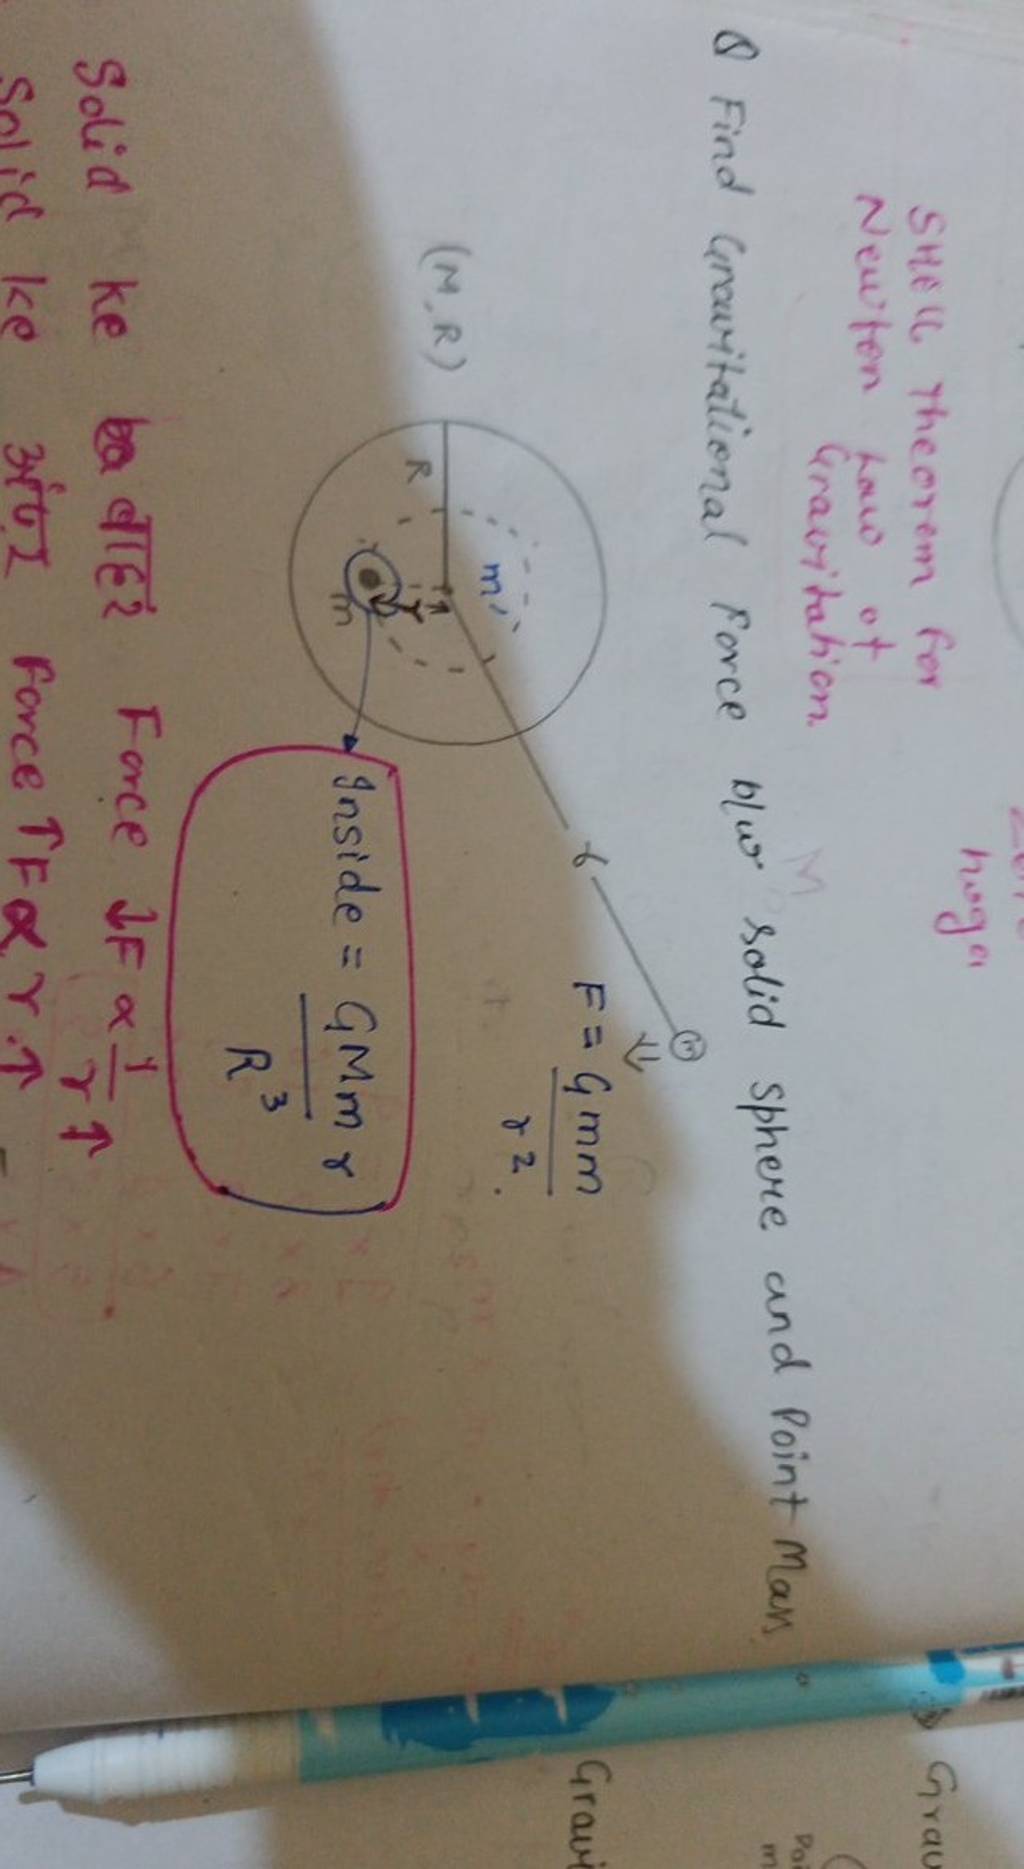 hoga
SHELL Theorem for
Newton Law of
Gravitation.
Q Find Gravitational Force b/w solid sphere and Point Mass
M
m
r
F = Gmm
r².
(M, R)
R
m'
r
m
Inside = GMm r
R³
Solid ke बाहर Force ↓F ∝ 1/r↑
Solid ke अंदर Force↑F ∝ r.↑
Grav
Gravi